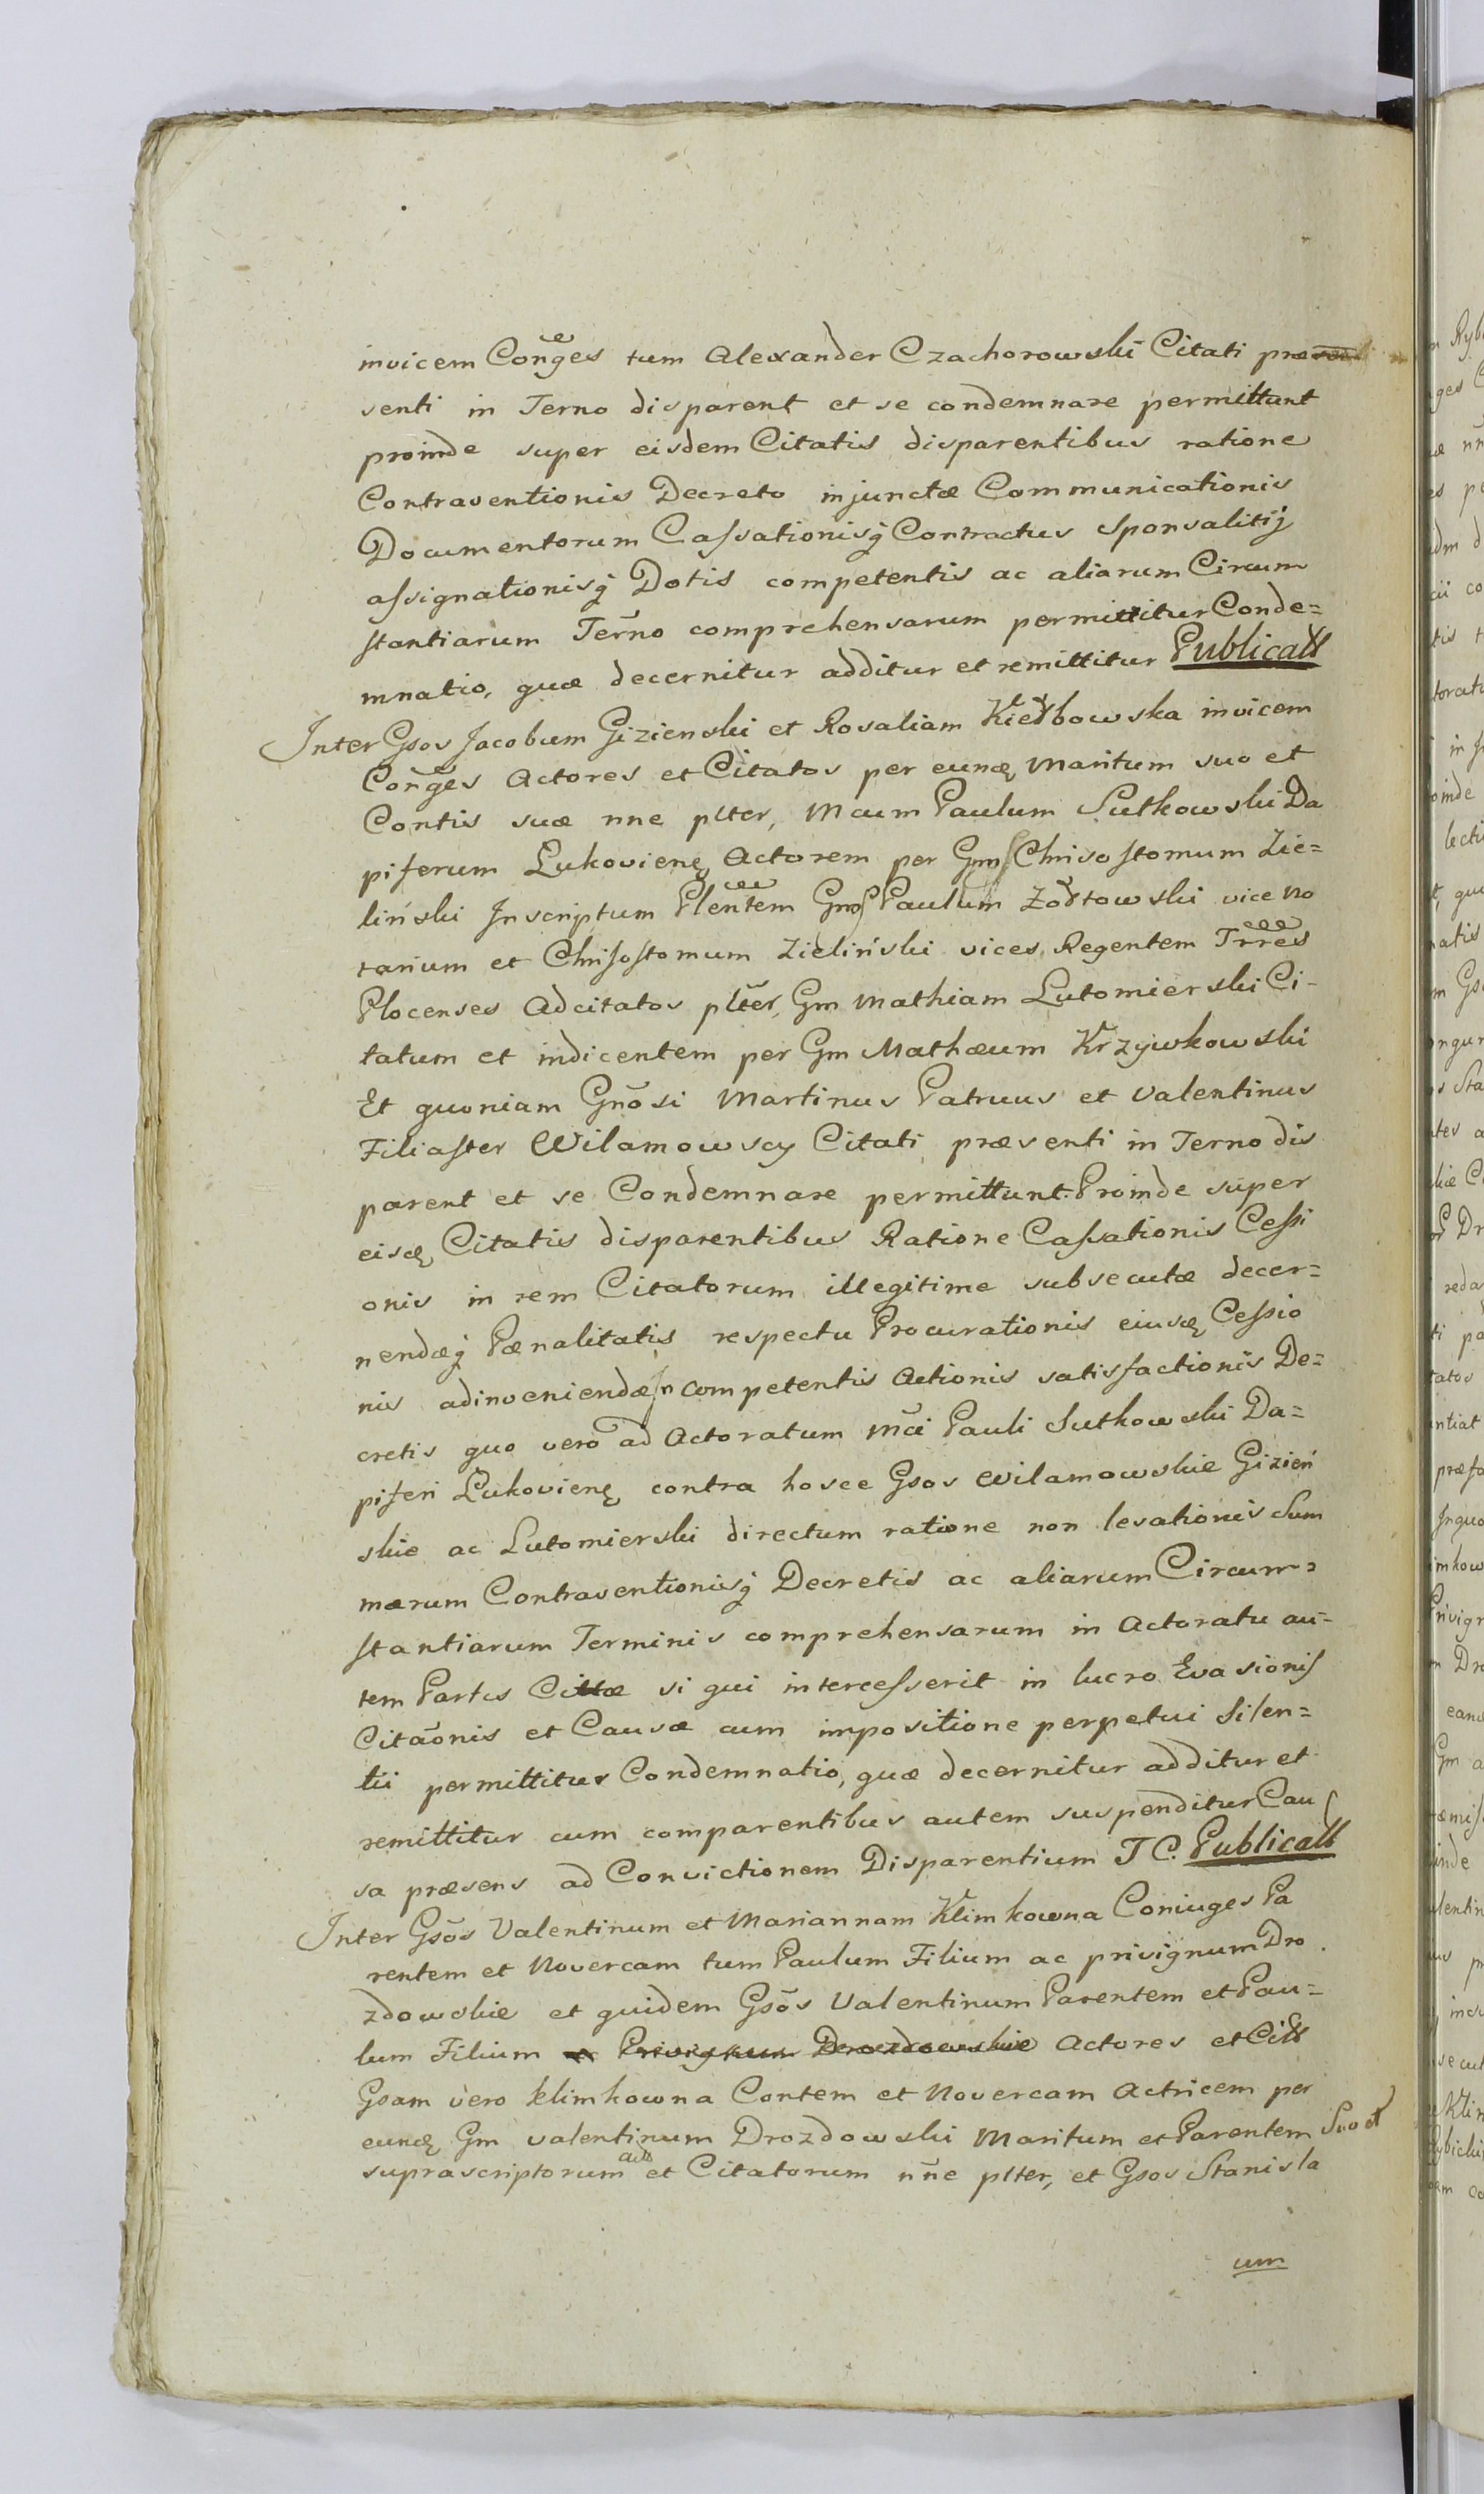 invicem Con̄ges tum Alexander Czachorowski Citati præ
senti in Terno disparent et se condemnare permittunt
proinde super eisdem Citatis disparentibus ratione
Contraventionis Decreto injunctæ Communicationis
Documentorum Caſsationisq̨ Contractus Sponsalitij
aſsignationisq̨ Dotis competentis ac aliarum Circum
ſtantiarum Ter̄no comprehensarum permittitur Conde=
mnatio, quæ decernitur additur et remittitur Publicatt
Inter Gsos Jacobum Gizienski et Rosaliam Kiełbowska invicem
Con̄ges Actores et Citatos per eund̨ Maritum suo et
Contis suæ nne plter, Mcum Paulum Sutkowski Da
piferum Łukovien̨ Actorem per Gm Chrisoſtomum Zie=
liński Inscriptum Plen̄tem Gnos Paulum Zołtowski vice No
tarium et Chriſoſtomum Zieliński vices Regentem Trres
Plocenses Adcitatos plt̄er, Gm Mathiam Lutomierski Ci-
tatum et indicentem per Gm Mathæum Krzywkowski
Et quoniam Gnōsi Martinus Patruus et Valentinus
Filiaſter Wilamowscy Citati præsenti in Terno dis
parent et se Condemnare permittunt. Proinde super
eisd̨ Citatis disparentibus Ratione Caſsationis Ceſsi
onis in rem Citatorum illegitime subsecutæ decer=
nendæq̨ Pænalitatis respectu Procurationis eiusd̨ Ceſsio
nis adinveniendæ In competentis Actionis satisfactionis De=
cretis quo vero ad Actoratum Mc̄i Pauli Sutkowski Da=
piferi Łukovien̨ contra hosce Gsos Wilamowskie Gizień
skie ac Lutomierski directum ratione non levationis Sum
marum Contraventionisq̨ Decretis ac aliarum Circum=
ſtantiarum Terminis comprehensarum in Actoratu au=
tem Partis Cittæ si qui interceſserit in lucro Evasioniſ
Citāonis et Causæ cum impositione perpetui Silen=
tii permittitur Condemnatio, quæ decernitur additur et
remittitur cum comparentibus autem suspenditur Cau
sa præsens ad Convictionem Disparentium T C. Publicatt
Inter Gsōs Valentinum et Mariannam Klimkowna Coniuges Pa
rentem et Novercam tum Paulum Filium ac privignum Dro
zdowskie et quidem Gsōs Valentinum Parentem et Pau=
lum Filium Privignum Drozdowskie Actores et Citt
Gsam vero Klimkowna Contem et Novercam Actricem per
eund̨ Gm Valentinum Drozdowski Maritum et Parentem Suo et
suprascriptorum et Citatorum nn̄e plter, et Gsos Stanisla
um